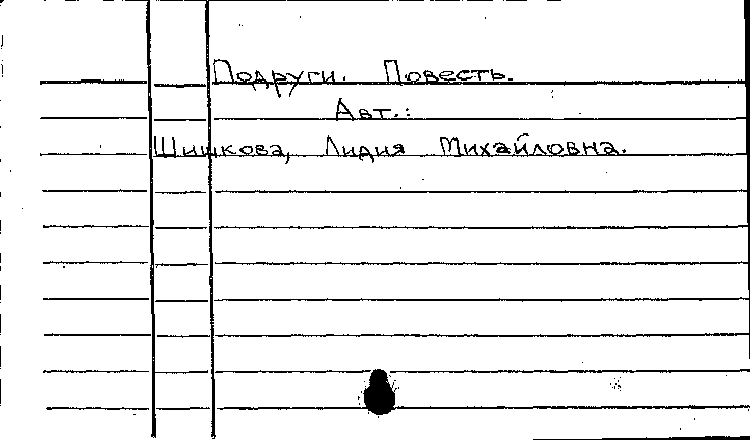 Подруги. Повесть.
Авт.:
Шишкова, Лидия Михайловна.